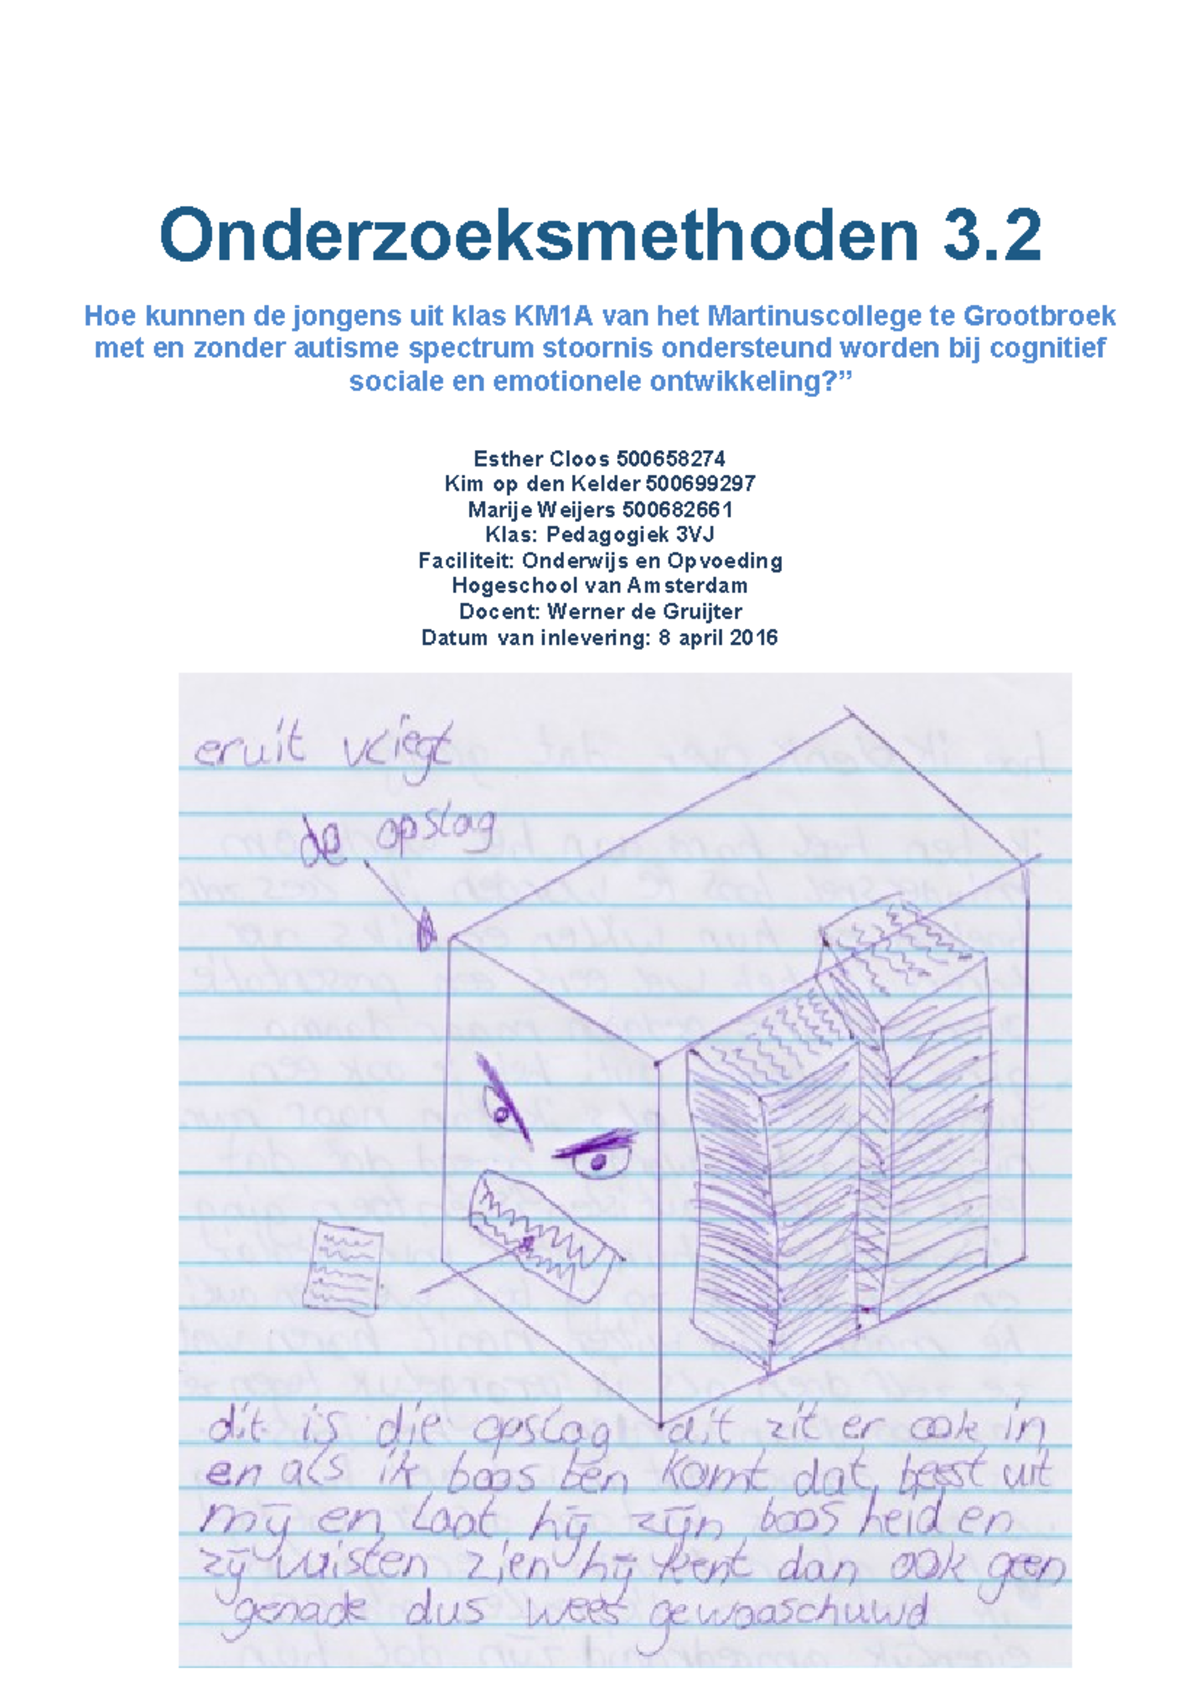 Onderzoeksmethoden 3.2
Hoe kunnen de jongens uit klas KM1A van het Martinuscollege te Grootbroek
met en zonder autisme spectrum stoornis ondersteund worden bij cognitief
sociale en emotionele ontwikkeling?”
Esther Cloos 500658274
Kim op den Kelder 500699297
Marije Weijers 500682661
Klas: Pedagogiek 3VJ
Faciliteit: Onderwijs en Opvoeding
Hogeschool van Amsterdam
Docent: Werner de Gruijter
Datum van inlevering: 8 april 2016
eruit vliegt
de opslag
dit is die opslag dit zit er ook in
en als ik boos ben komt dat beest uit
mij en laat hij zijn boosheid en
zij vuisten zien hij kent dan ook geen
genade dus wees gewaaschuwd